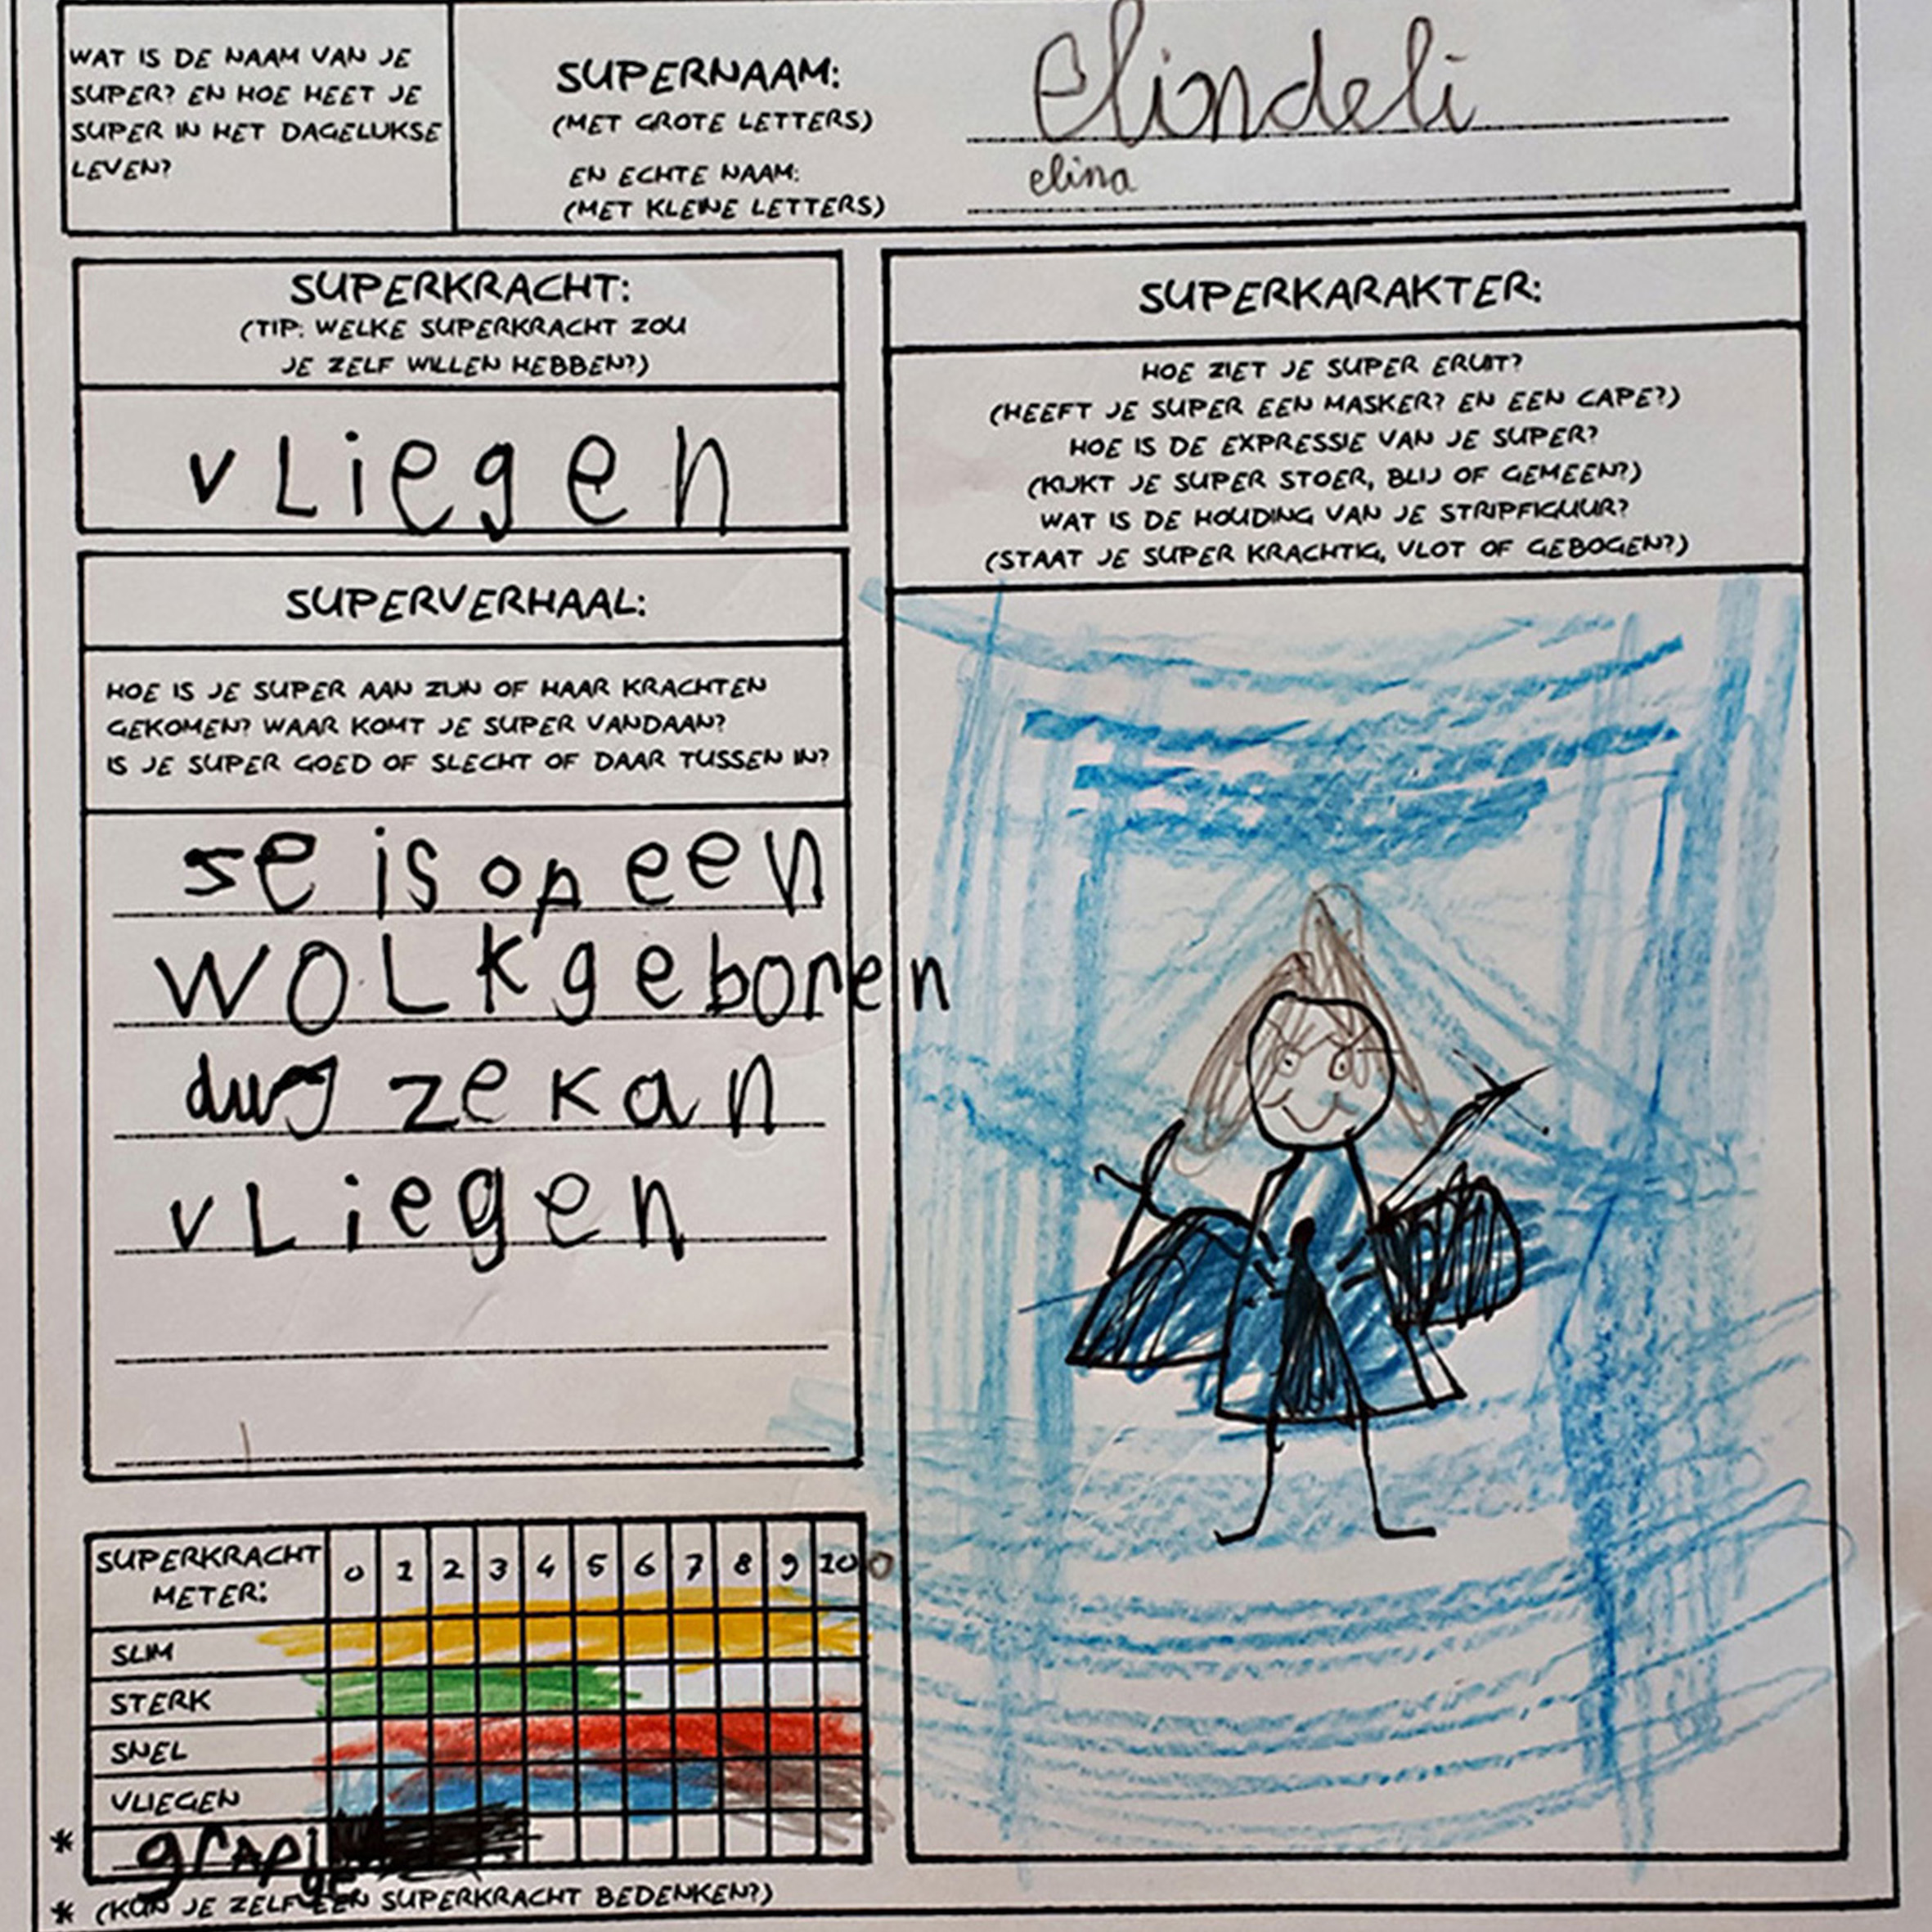 WAT IS DE NAAM VAN JE
SUPER? EN HOE HEET JE
SUPER IN HET DAGELIJKSE
LEVEN?
SUPERNAAM:
(MET GROTE LETTERS)
Elindeli
EN ECHTE NAAM:
(MET KLEINE LETTERS)
elina
SUPERKRACHT:
(TIP: WELKE SUPERKRACHT ZOU
JE ZELF WILLEN HEBBEN?)
vLiegen
SUPERVERHAAL:
HOE IS JE SUPER AAN ZIJN OF HAAR KRACHTEN
GEKOMEN? WAAR KOMT JE SUPER VANDAAN?
IS JE SUPER GOED OF SLECHT OF DAAR TUSSEN IN?
se is op een
WOLK geboren
dus ze kan
vLiegen
SUPERKRACHT
METER:
0 1 2 3 4 5 6 7 8 9 10 0
SLIM
STERK
SNEL
VLIEGEN
* grapi
ge
* (KUN JE ZELF EEN SUPERKRACHT BEDENKEN?)
SUPERKARAKTER:
HOE ZIET JE SUPER ERUIT?
(HEEFT JE SUPER EEN MASKER? EN EEN CAPE?)
HOE IS DE EXPRESSIE VAN JE SUPER?
(KIJKT JE SUPER STOER, BLIJ OF GEMEEN?)
WAT IS DE HOUDING VAN JE STRIPFIGUUR?
(STAAT JE SUPER KRACHTIG, VLOT OF GEBOGEN?)